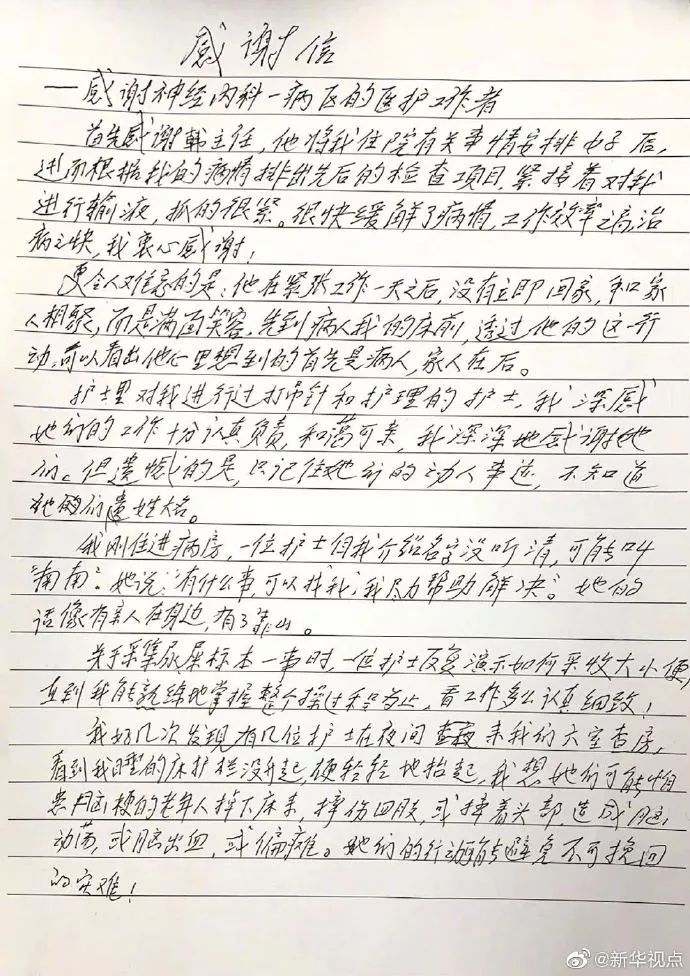 感谢信
——感谢神经内科一病区的医护工作者
首先感谢韩主任,他将我住院有关事情安排好后,
进而根据我的病情排出先后的检查项目,紧接着对我
进行输液,抓的很紧。很快缓解了病情,工作效率之高,治
病之快,我衷心感谢!
更令人难忘的是:他在紧张工作一天之后,没有立即回家,和家
人相聚,而是满面笑容,先到病人我的床前,透过他的这一行
动,可以看出他心里想到的首先是病人,家人在后。
护士里对我进行过打吊针和护理的护士,我深感
她们的工作十分认真负责,和蔼可亲,我深深地感谢她
们。但遗憾的是,只记住她们的动人事迹,不知道
她们姓名。
我刚住进病房,一位护士向我介绍名字没听清,可能叫
“南南”。她说:“有什么事,可以找我,我尽力帮助解决”。她的
话像有亲人在身边,有了靠山。
关于采集尿屎标本一事时,一位护士反复演示如何采收大小便,
直到我能熟练地掌握整个操过程为止,看工作多么认真细致!
我好几次发现有几位护士在夜间来我们六室查房,
看到我睡的床护栏没升起,便轻轻地抬起,我想她们可能怕
患脑梗的老年人掉下床来,摔伤四肢,或撞着头部,造成脑
动荡,或脑出血,或偏瘫。她们的行动能避免不可挽回
的灾难!
@新华视点